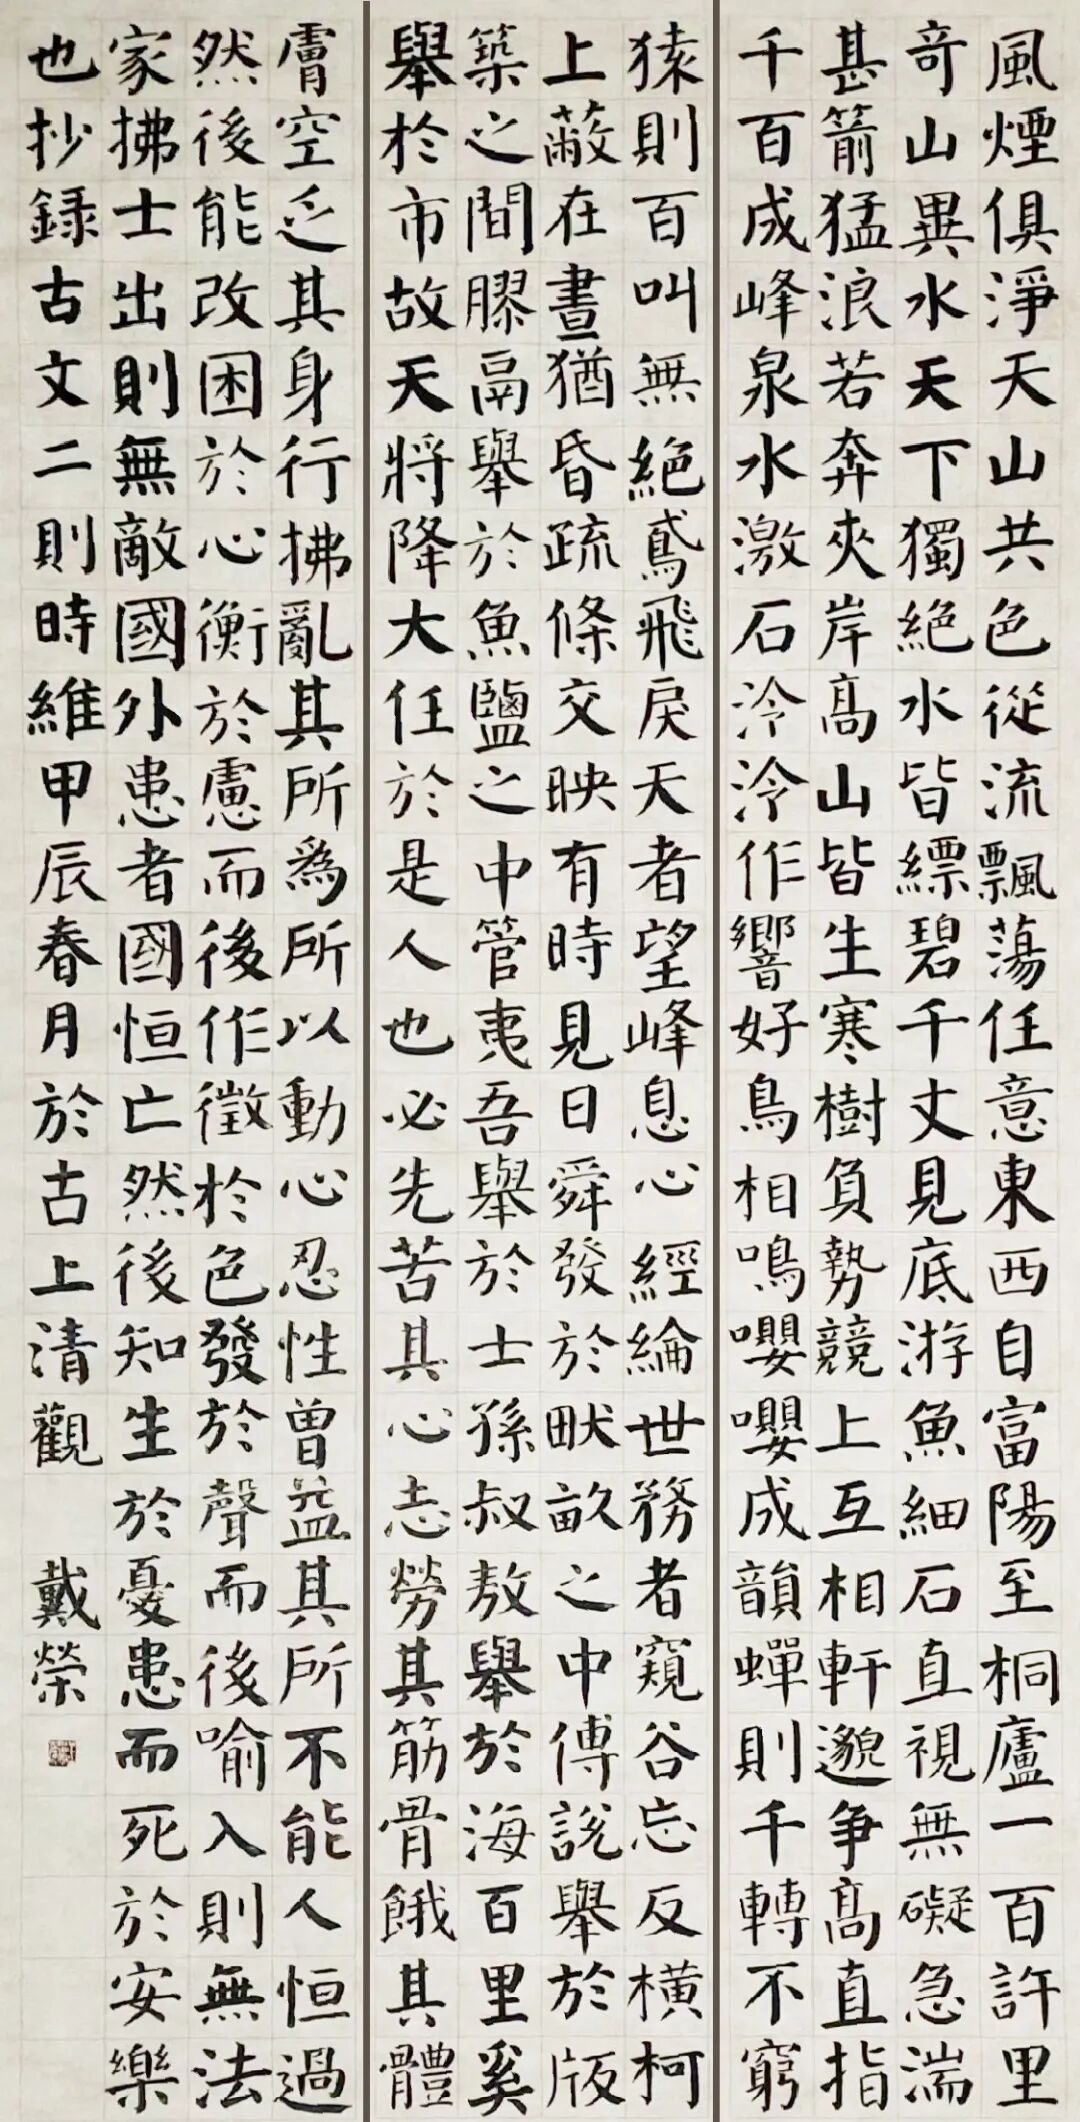 風煙俱淨天山共色從流飄蕩任意東西自富陽至桐廬一百許里
奇山異水天下獨絕水皆縹碧千丈見底游魚細石直視無礙急湍
甚箭猛浪若奔夾岸高山皆生寒樹負勢競上互相軒邈爭高直指
千百成峰泉水激石泠泠作響好鳥相鳴嚶嚶成韻蟬則千轉不窮
猿則百叫無絕鳶飛戾天者望峰息心經綸世務者窺谷忘反橫柯
上蔽在晝猶昏疏條交映有時見日舜發於畎畝之中傅說舉於版
築之間膠鬲舉於魚鹽之中管夷吾舉於士孫叔敖舉於海百里奚
舉於市故天將降大任於是人也必先苦其心志勞其筋骨餓其體
膚空乏其身行拂亂其所為所以動心忍性曾益其所不能人恒過
然後能改困於心衡於慮而後作徵於色發於聲而後喻入則無法
家拂士出則無敵國外患者國恒亡然後知生於憂患而死於安樂
也抄錄古文二則時維甲辰春月於古上清觀 戴榮